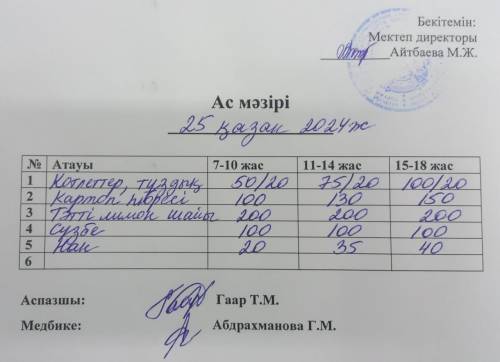 Бекітемін:
Мектеп директоры
Айтбаева М.Ж.
Ас мәзірі
25 қазан 2024ж
№ Атауы 7-10 жас 11-14 жас 15-18 жас
1 Котлеттер, тұздық 50/20 75/20 100/20
2 Картоп пюресі 100 130 150
3 Тәтті лимон шайы 200 200 200
4 Сүзбе 100 100 100
5 Нан 20 35 40
6
Аспазшы: Гаар Т.М.
Медбике: Абдрахманова Г.М.